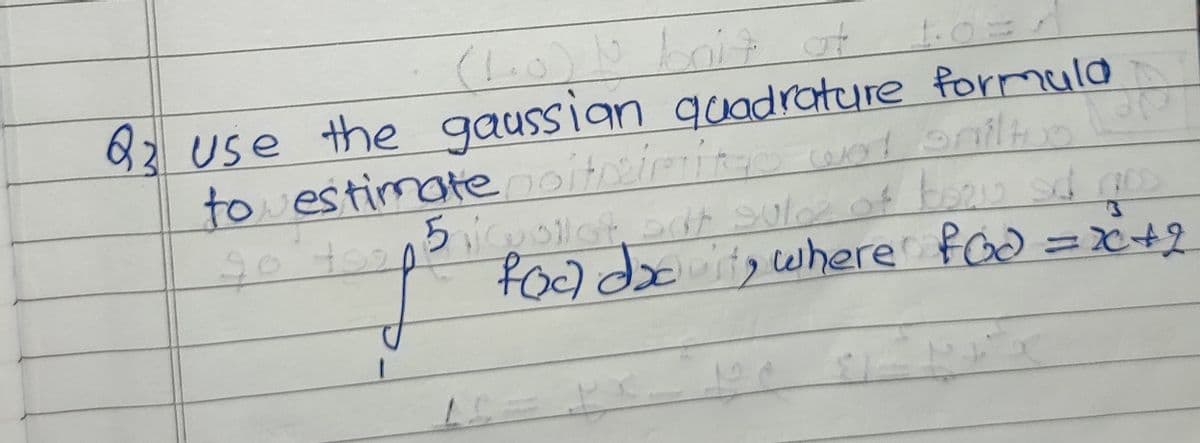 Q3 use the gaussian quadrature formula
to estimate
∫₁⁵ f(x) dx, where f(x) = x³+2